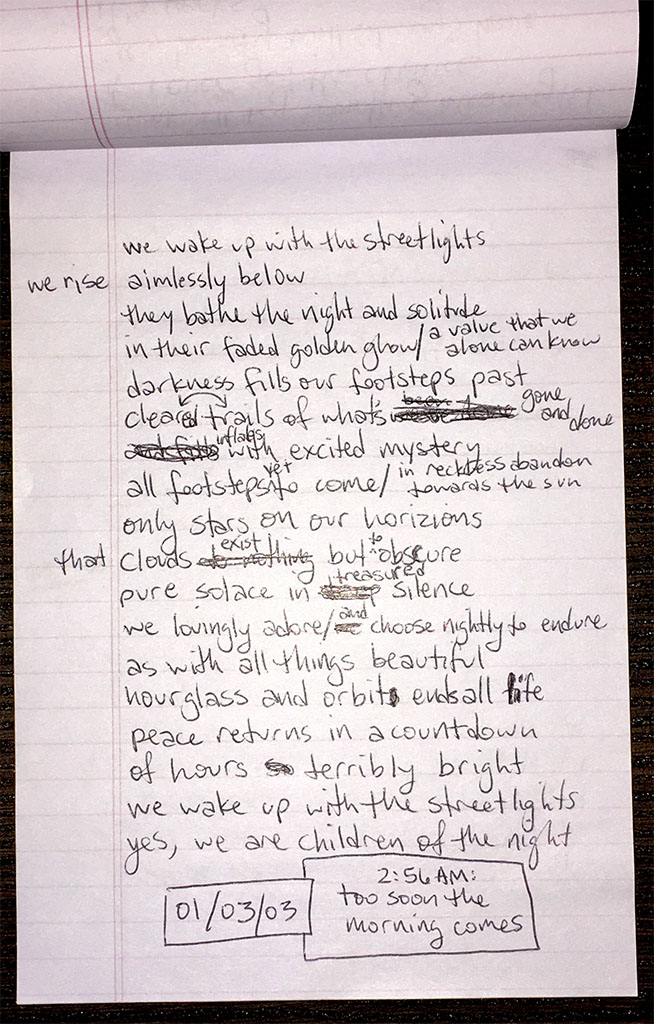 we wake up with the streetlights
we rise aimlessly below
they bathe the night and solitude
in their faded golden glow/a value that we alone can know
darkness fills our footsteps past
cleared trails of what's been gone and done
and fills inflates with excited mystery
all footsteps yet to come/in reckless abandon towards the sun
only stars on our horizions
that clouds do nothing exist but to obscure
pure solace in treasured silence
we lovingly adore/and choose nightly to endure
as with all things beautiful
hourglass and orbits ends all life
peace returns in a countdown
of hours terribly bright
we wake up with the streetlights
yes, we are children of the night
01/03/03
2:56 AM:
too soon the
morning comes